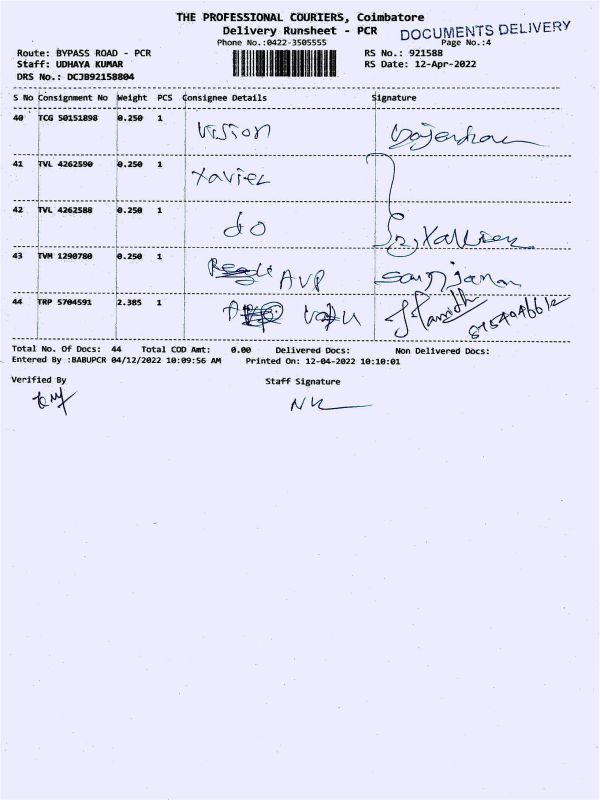 THE PROFESSIONAL COURIERS, Coimbatore
Delivery Runsheet - PCR
DOCUMENTS DELIVERY
Phone No.:0422-3505555
Page No.:4
Route: BYPASS ROAD - PCR
RS No.: 921588
Staff: UDHAYA KUMAR
RS Date: 12-Apr-2022
DRS No.: DCJB92158804
S No Consignment No Weight PCS Consignee Details Signature
40 TCG 50151898 0.250 1 Vision
41 TVL 4262590 0.250 1 Xavier
42 TVL 4262588 0.250 1 do
43 TVM 1290780 0.250 1 AVP
44 TRP 5704591 2.385 1
Total No. Of Docs: 44 Total COD Amt: 0.00 Delivered Docs: Non Delivered Docs:
Entered By :BABUPCR 04/12/2022 10:09:56 AM Printed On: 12-04-2022 10:10:01
Verified By Staff Signature